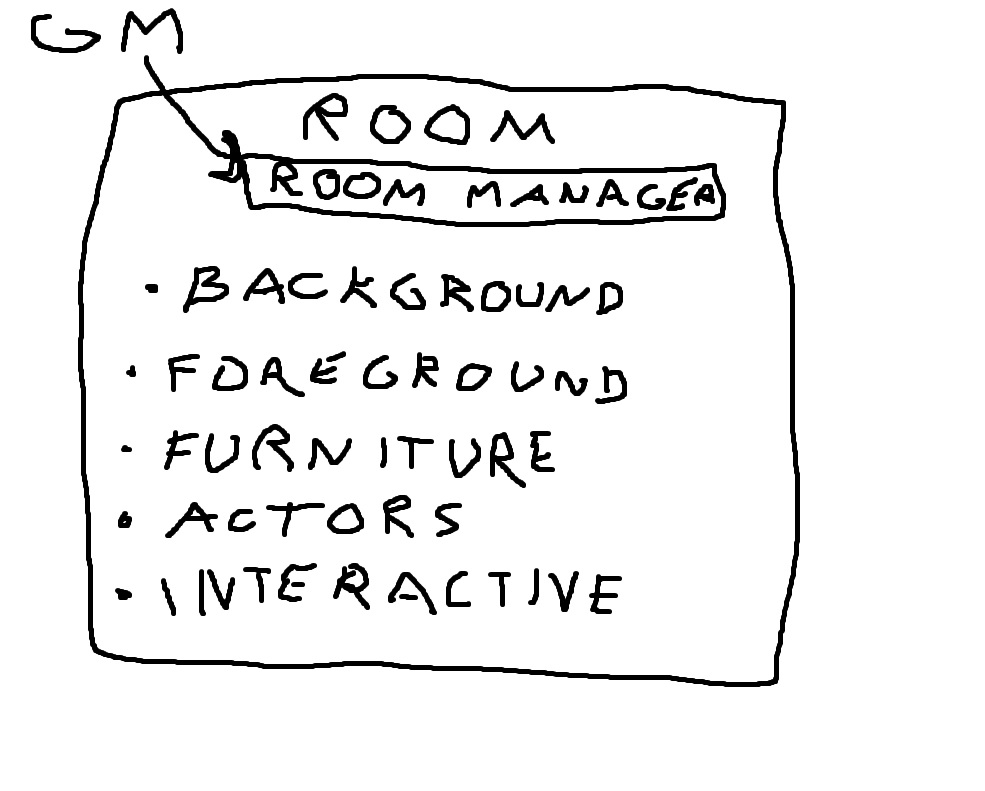 GM
ROOM
ROOM MANAGER
• BACKGROUND
• FOREGROUND
• FURNITURE
• ACTORS
• INTERACTIVE